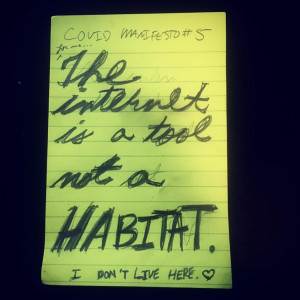 COVID MANIFESTO #5
for me...
The
internet
is a tool
not a
HABITAT.
I DON'T LIVE HERE. ♡